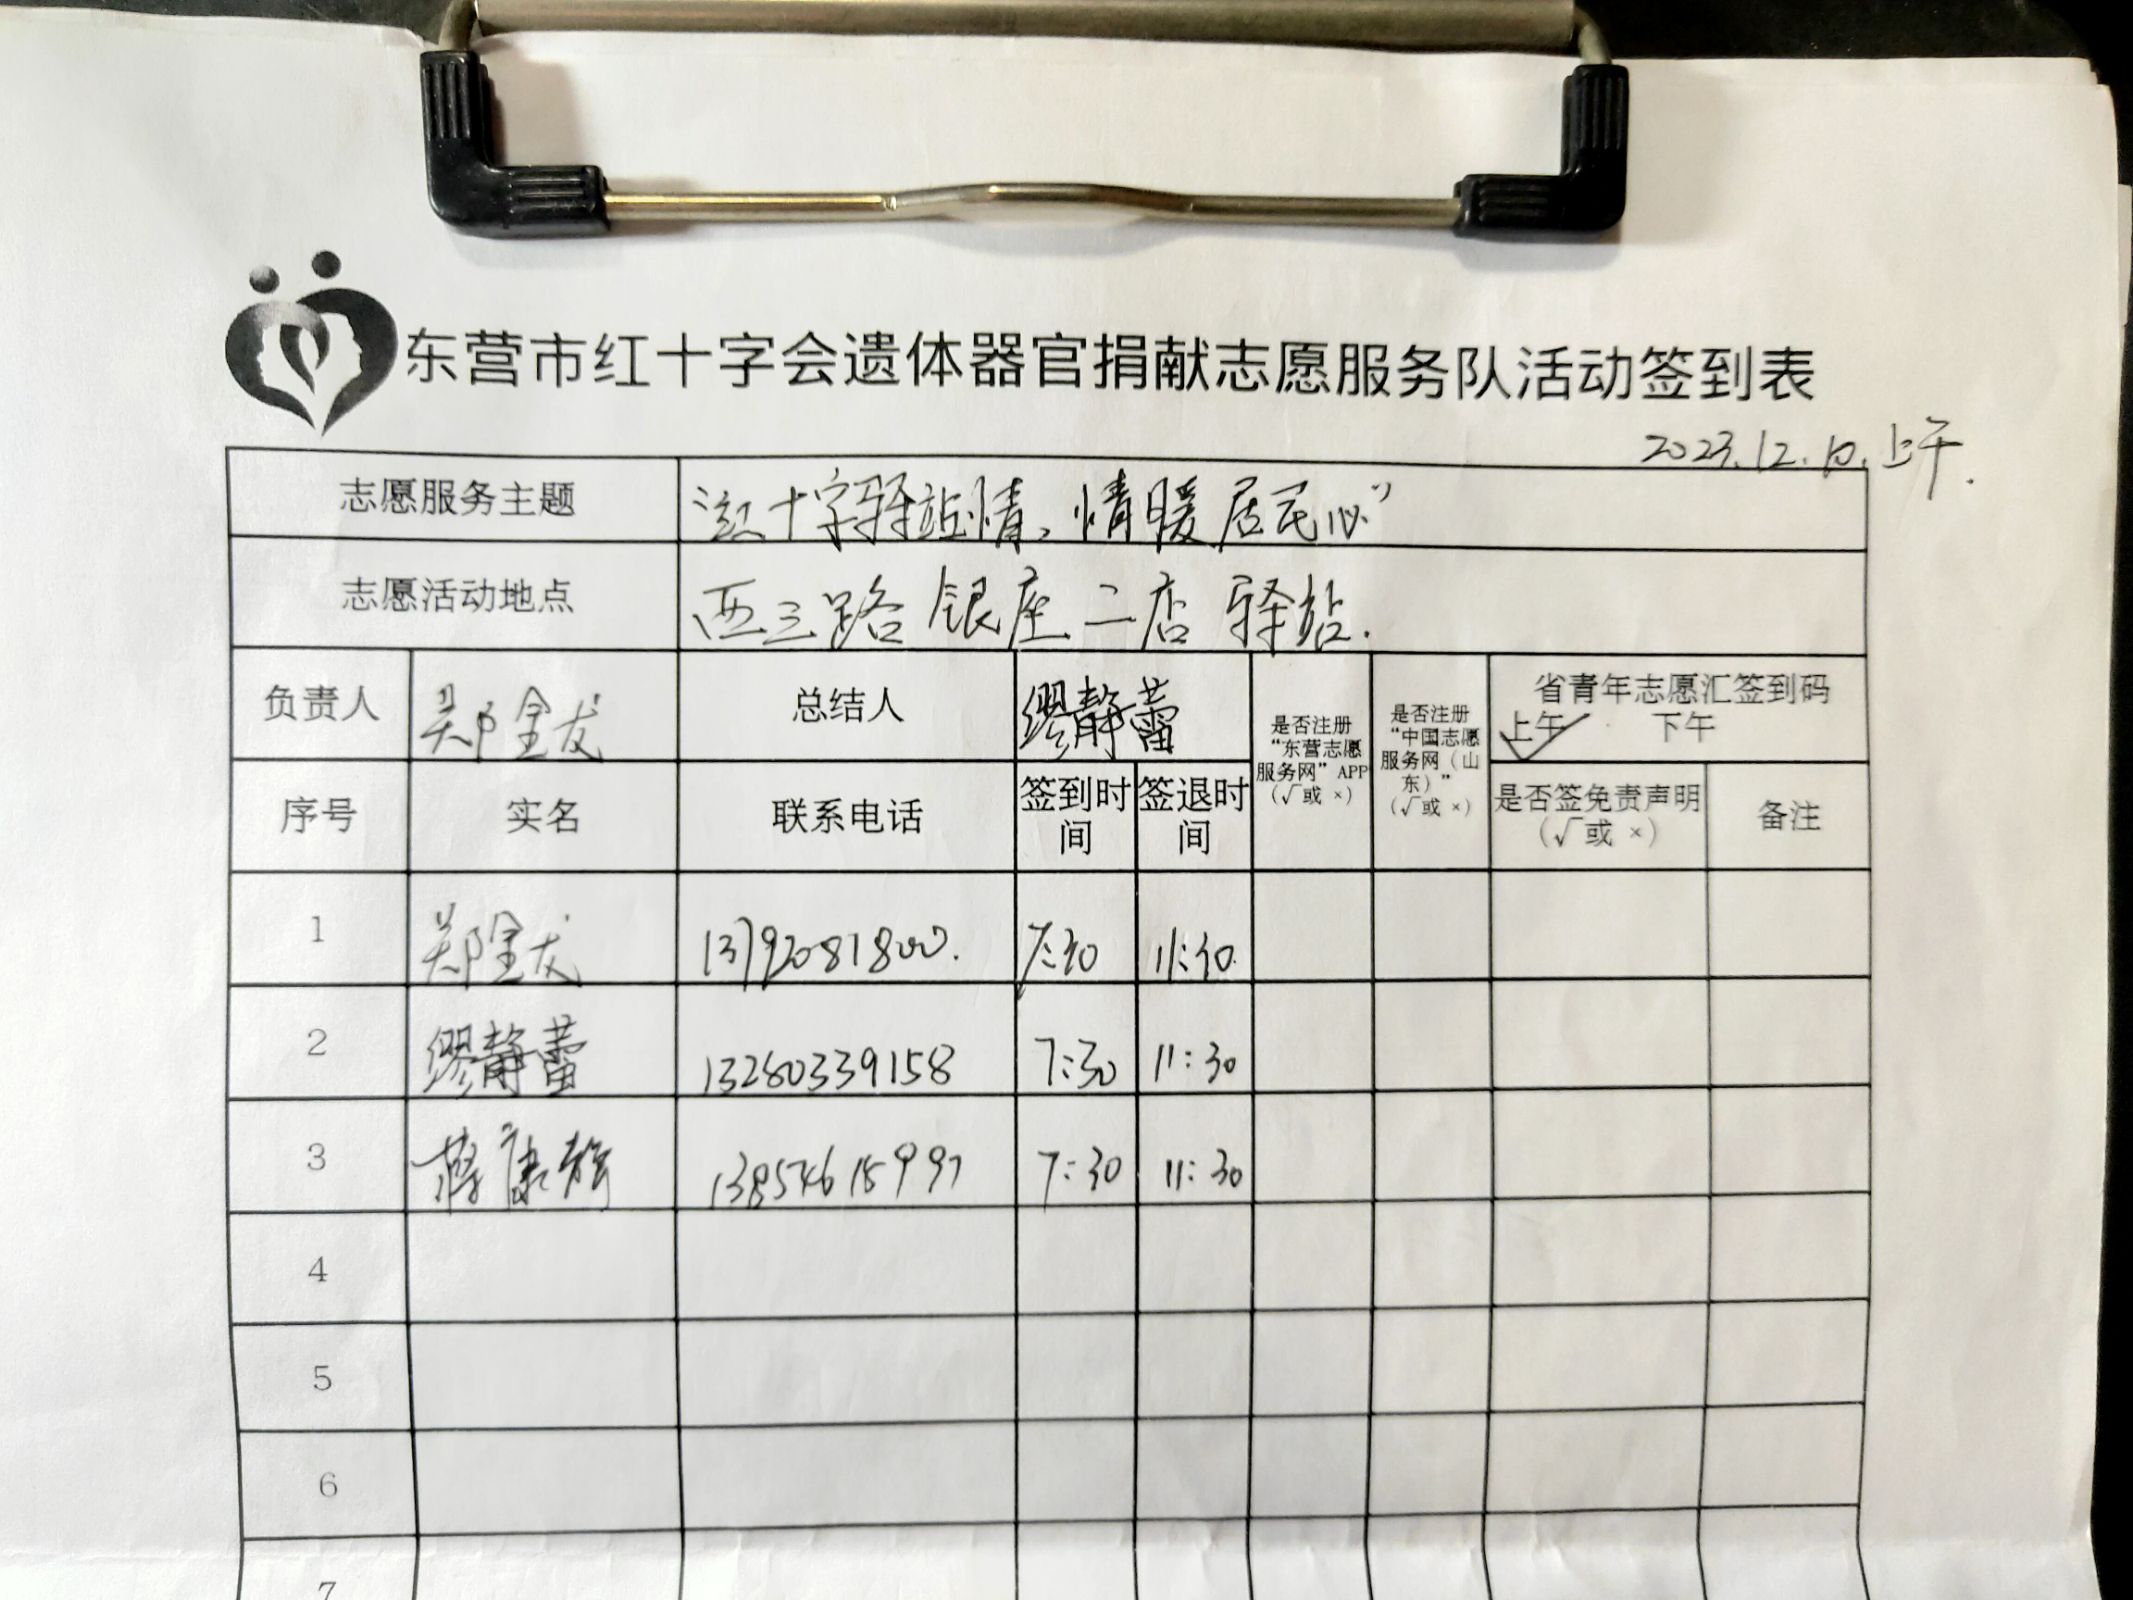 东营市红十字会遗体器官捐献志愿服务队活动签到表
2023.12.10.上午.
志愿服务主题 “红十字驿站情、情暖居民心”
志愿活动地点 西三路 银座二店 驿站.
负责人 郑金友 总结人 缪静蕾 是否注册“东营志愿服务网”APP(√或 ×) 是否注册“中国志愿服务网（山东）”(√或 ×) 省青年志愿汇签到码
上午✓ 下午
序号 实名 联系电话 签到时间 签退时间 是否签免责声明(√或 ×) 备注
1 郑金友 13792081800. 7:30 11:30.
2 缪静蕾 13280339158 7:30 11:30
3 康 7:30 11:30
4
5
6
7